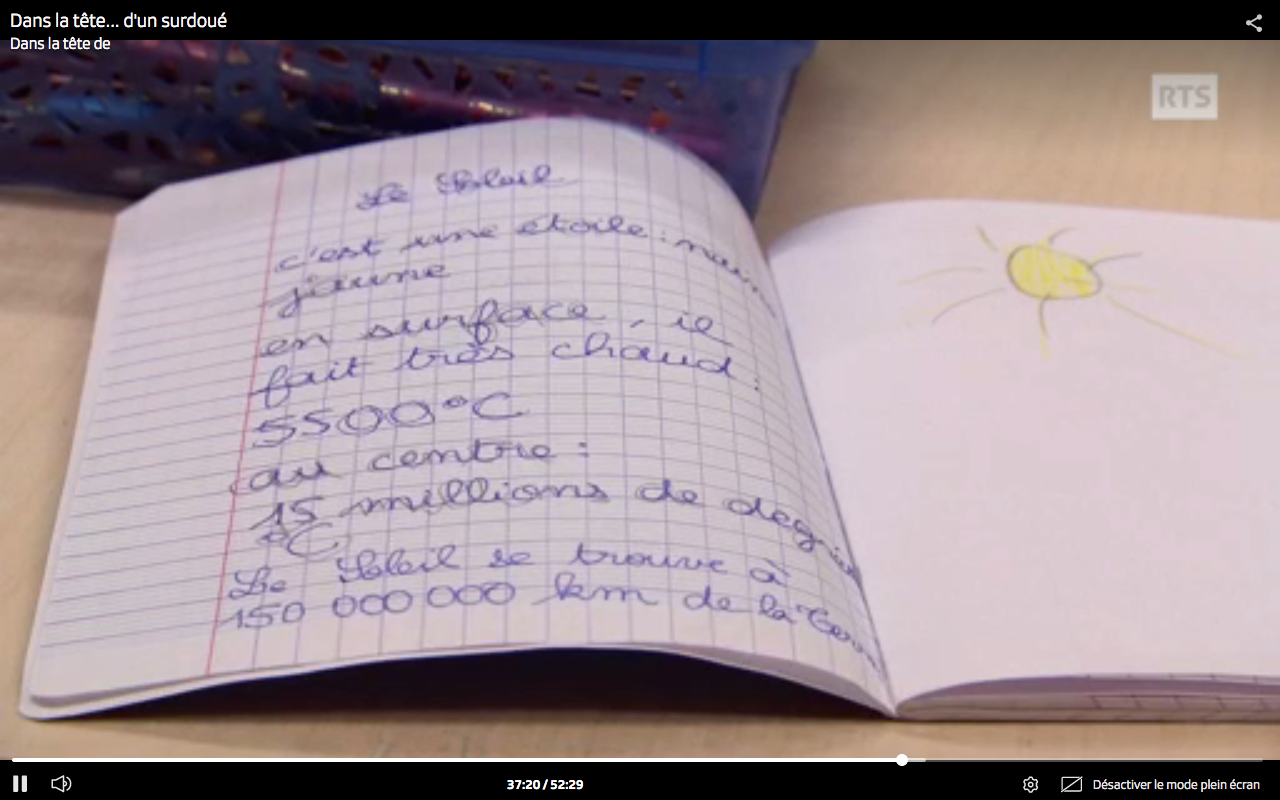 Dans la tête... d'un surdoué
Dans la tête de
RTS
Le Soleil
c'est une étoile :
jaune
en surface, il
fait très chaud :
5500°C
au centre :
15 millions de
°C
Le Soleil se trouve à
150 000 000 km de la Terre
37:20 / 52:29
Désactiver le mode plein écran